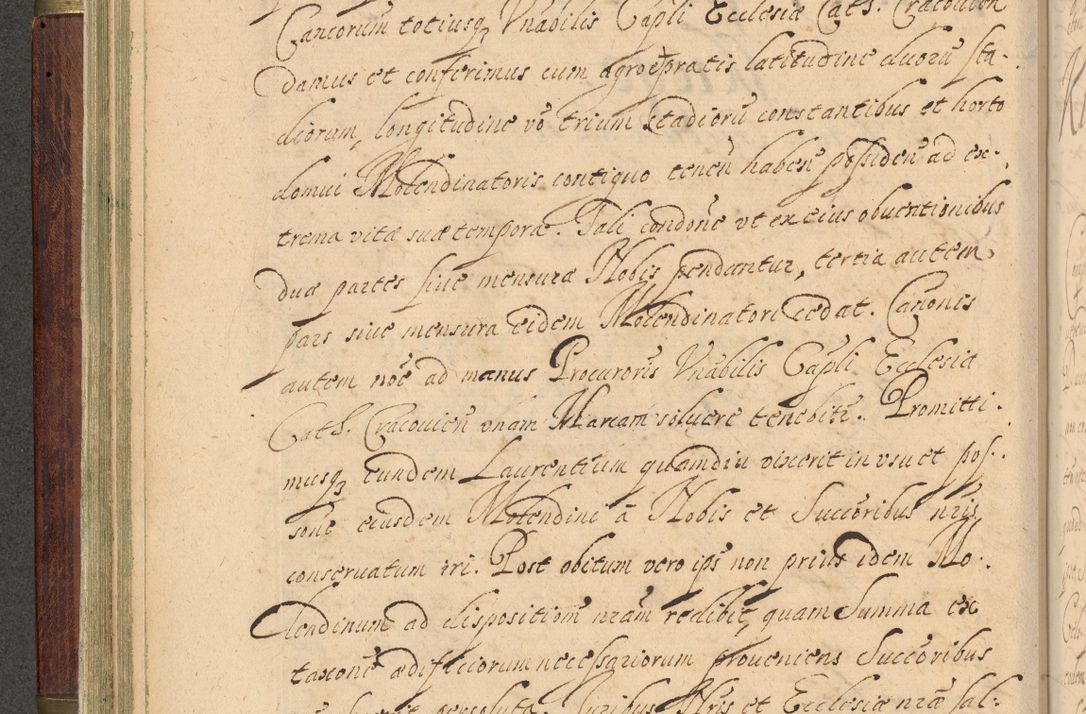 Canonicorum totiusq₃ Vnabilis Capli Ecclesiæ Cath. Cracouien
damus et conferimus cum agro et pratis latitudine duorū sta-
diorum, longitudine vō trium stadiorū constantibus et horto
domui Molendinatoris contiguo tenen̄ haben̄ possiden̄ ad ex-
trema vitæ suæ tempora. Tali condōne vt ex eius obuentionibus
duæ partes siue mensuræ Nobis pendantur, tertia autem
pars siue mensura eidem Molendinatori cedat. Canonis
autem nōe ad manus Procuroris Vnabilis Capli Ecclesiæ
Cath. Cracouien̄ vnam Marcam soluere tenebitr. Promitti-
musq₃ eundem Laurentium quamdiu vixerit in vsu et pos-
sōne eiusdem Molendini à Nobis et Succōribus nris
conseruatum iri. Post obitum vero ips̄ non prius idem Mo-
lendinum ad dispositiōm nram redibit, quam Summa ex
taxōne ædificiorum necessariorum proueniens Succōribus
persoluta. Iuribus Nris et Ecclesiæ nræ sal-